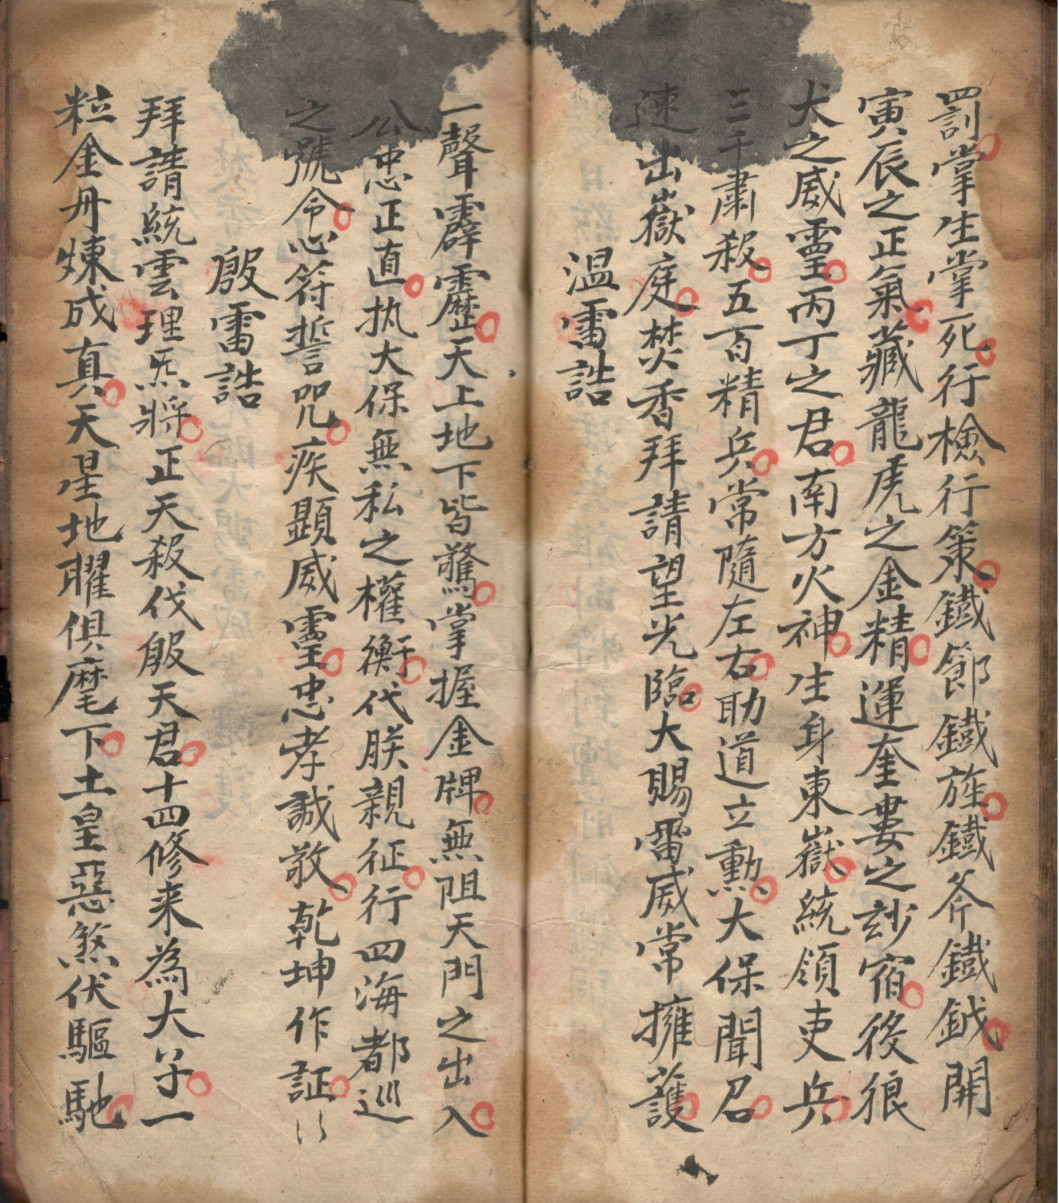 罰掌生掌死行檢行策鐵節鐵旌鐵斧鐵鉞開
寅辰之正氣藏龍虎之金精運奎婁之玅宿後狼
犬之威靈丙丁之君南方火神生身東嶽統領吏兵
三千肅殺五百精兵常隨左右助道立勳大保聞召
速出嶽庭焚香拜請望光臨大賜雷威常擁護
溫雷誥
一聲霹靂天上地下皆驚掌握金牌無阻天門之出入
公忠正直执大保無私之權衡代朕親征行四海都巡
之號令心符誓咒疾顯威靈忠孝誠敬乾坤作証
殷雷誥
拜請統雲理炁將正天殺伐殷天君十四修来為大子一
粒金丹煉成真天星地曜俱麾下土皇惡煞伏驅馳